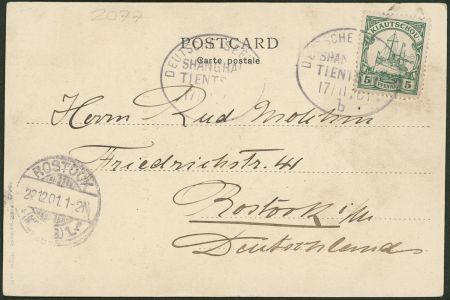 2077
POSTCARD
Carte postale
DEUTSCHE
SHANGHAI
TIENTS
17/
DEUTSCHE
SHANGHAI
TIENTS
17/11 01
b
KIAUTSCHOU
5 PFENNIG 5
Herrn Rud
Friedrichstr. 41
Rostock i/M
Deutschland
ROSTOCK
12.01.1-2N